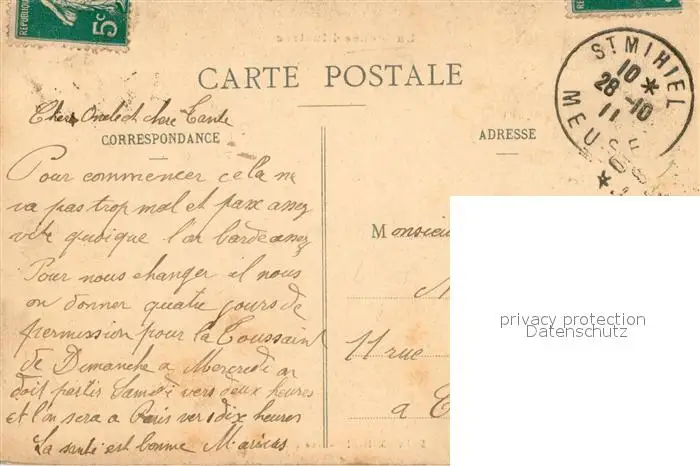 5c
5c
ST MIHIEL
10 *
28-10
11
MEUSE
CARTE POSTALE
Cher Oncle et chere Tante
CORRESPONDANCE
ADRESSE
Pour commencer cela ne
va pas trop mal et passe assez
vite quoique l'on barde assez
Pour nous changer il nous
on donner quatre jours de
permission pour la Toussaint
de Dimanche a Mercredi on
doit partir Samedi vers deux heures
et l'on sera a Paris vers dix heures
La santé est bonne Marius
Monsieu
11 rue
a
privacy protection
Datenschutz